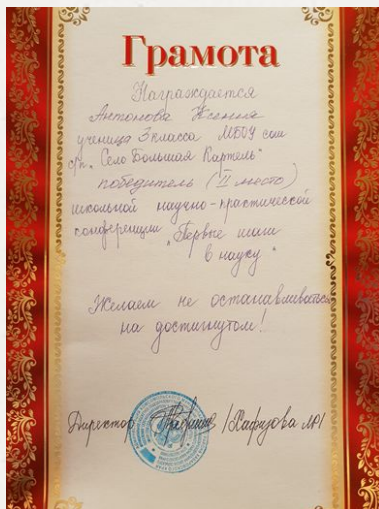 Грамота
Награждается
Антонова Ксения
ученица 3 класса МБОУ сош
с/п. "Село Большая Картель"
победитель (II место)
школьной научно-практической
конференции "Первые шаги
в науку"
Желаем не останавливаться
на достигнутом!
Директор /Хафизова